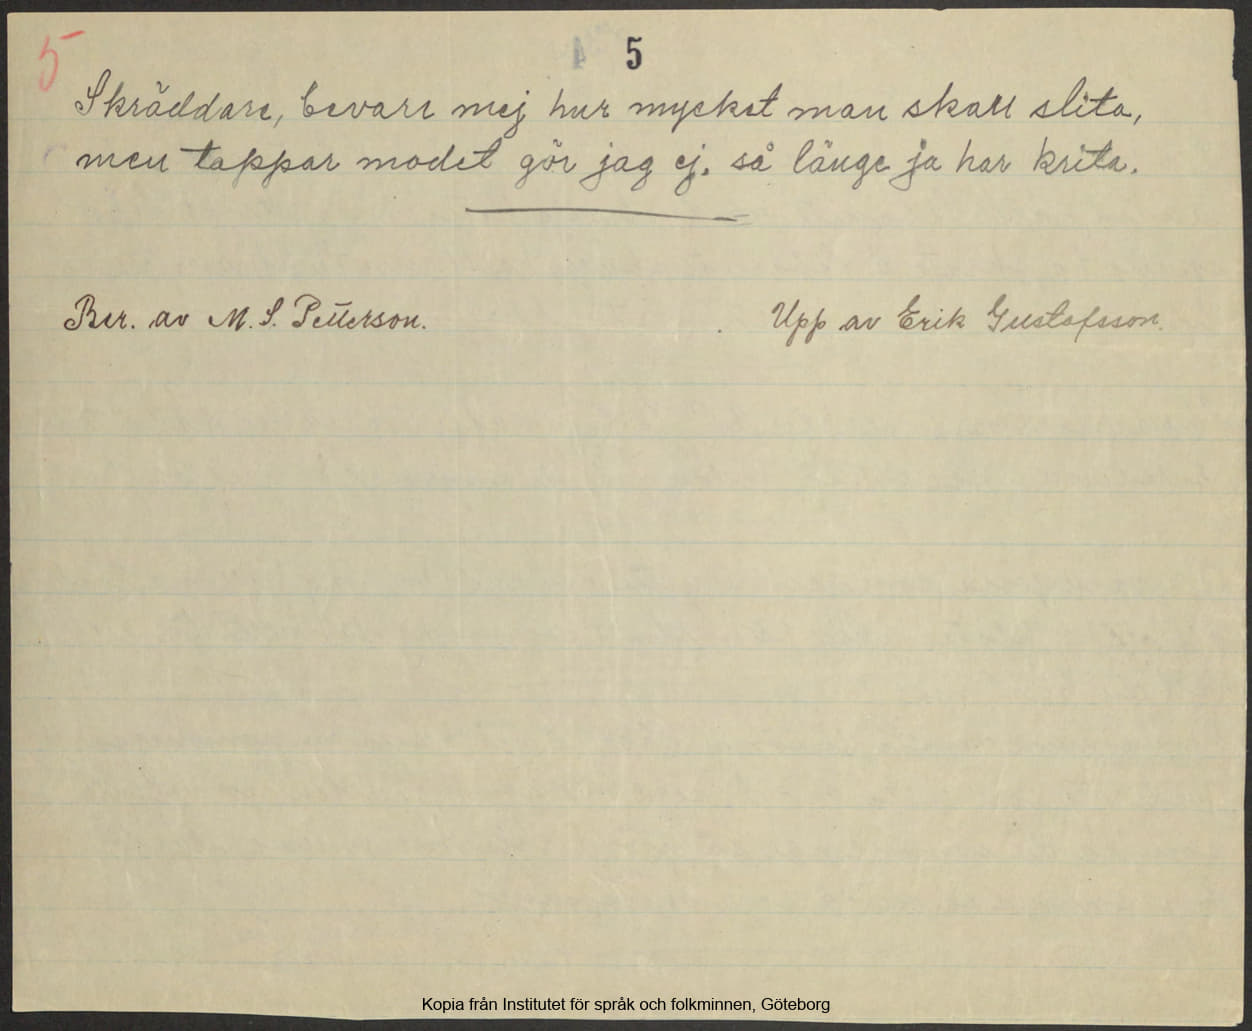 5
5
Skräddare, bevare mej hur mycket man skall slita,
men tappar modet gör jag ej, så länge ja har krita.
Ber. av M. S. Petterson.
Upp av Erik Gustafsson.
Kopia från Institutet för språk och folkminnen, Göteborg